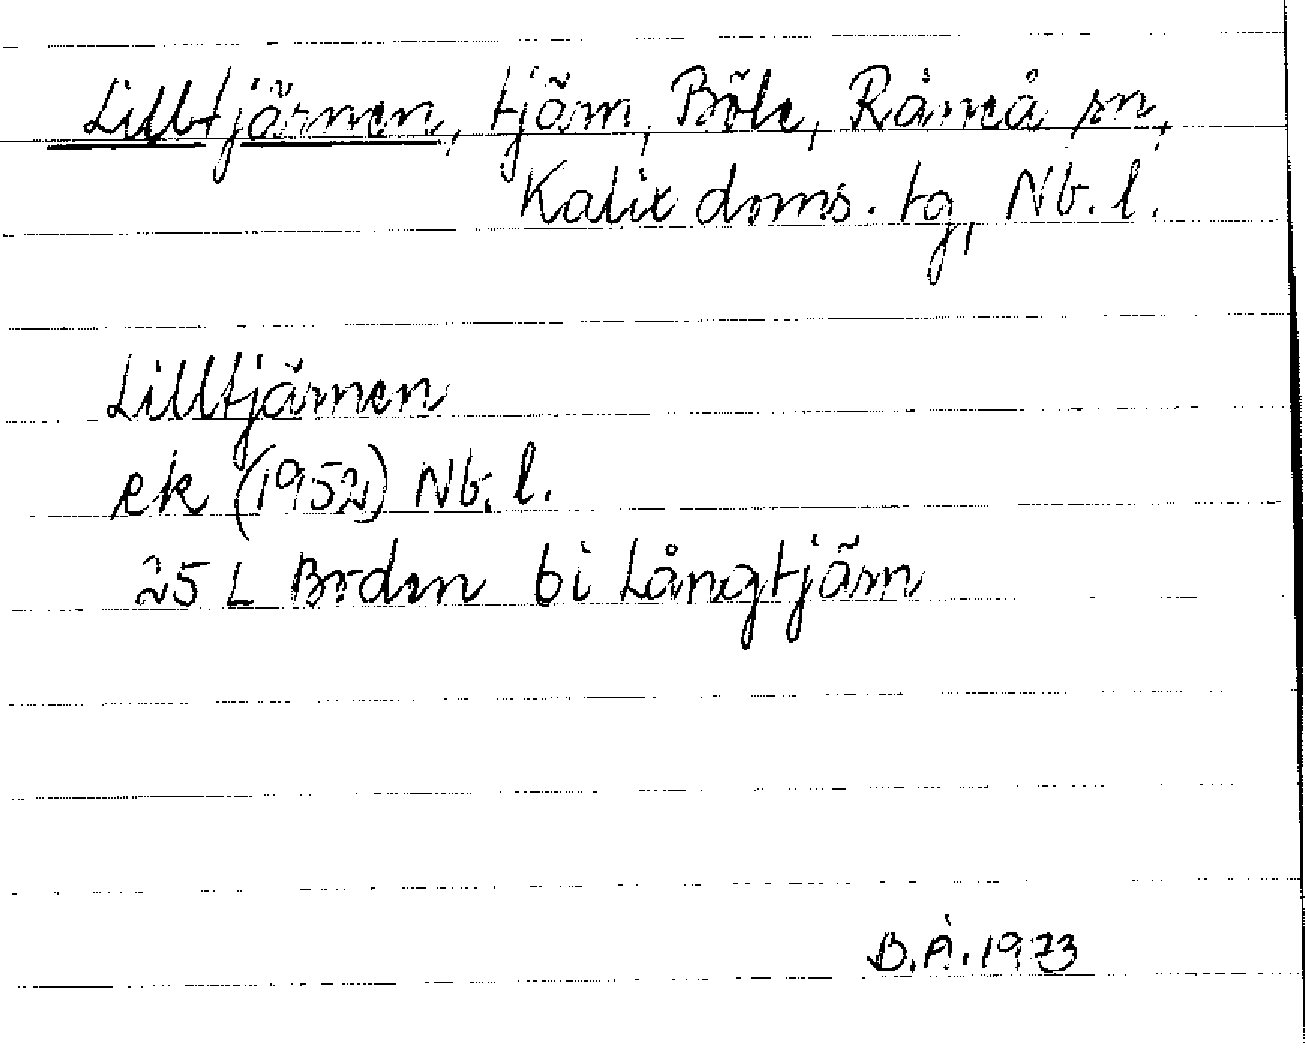 Lilltjärnen, tjärn, Böle, Råneå sn,
Kalix doms. tg, Nb. l.
Lilltjärnen
ek (1952) Nb. l.
25 L Boden 6i Långtjärn
B.Å. 1973